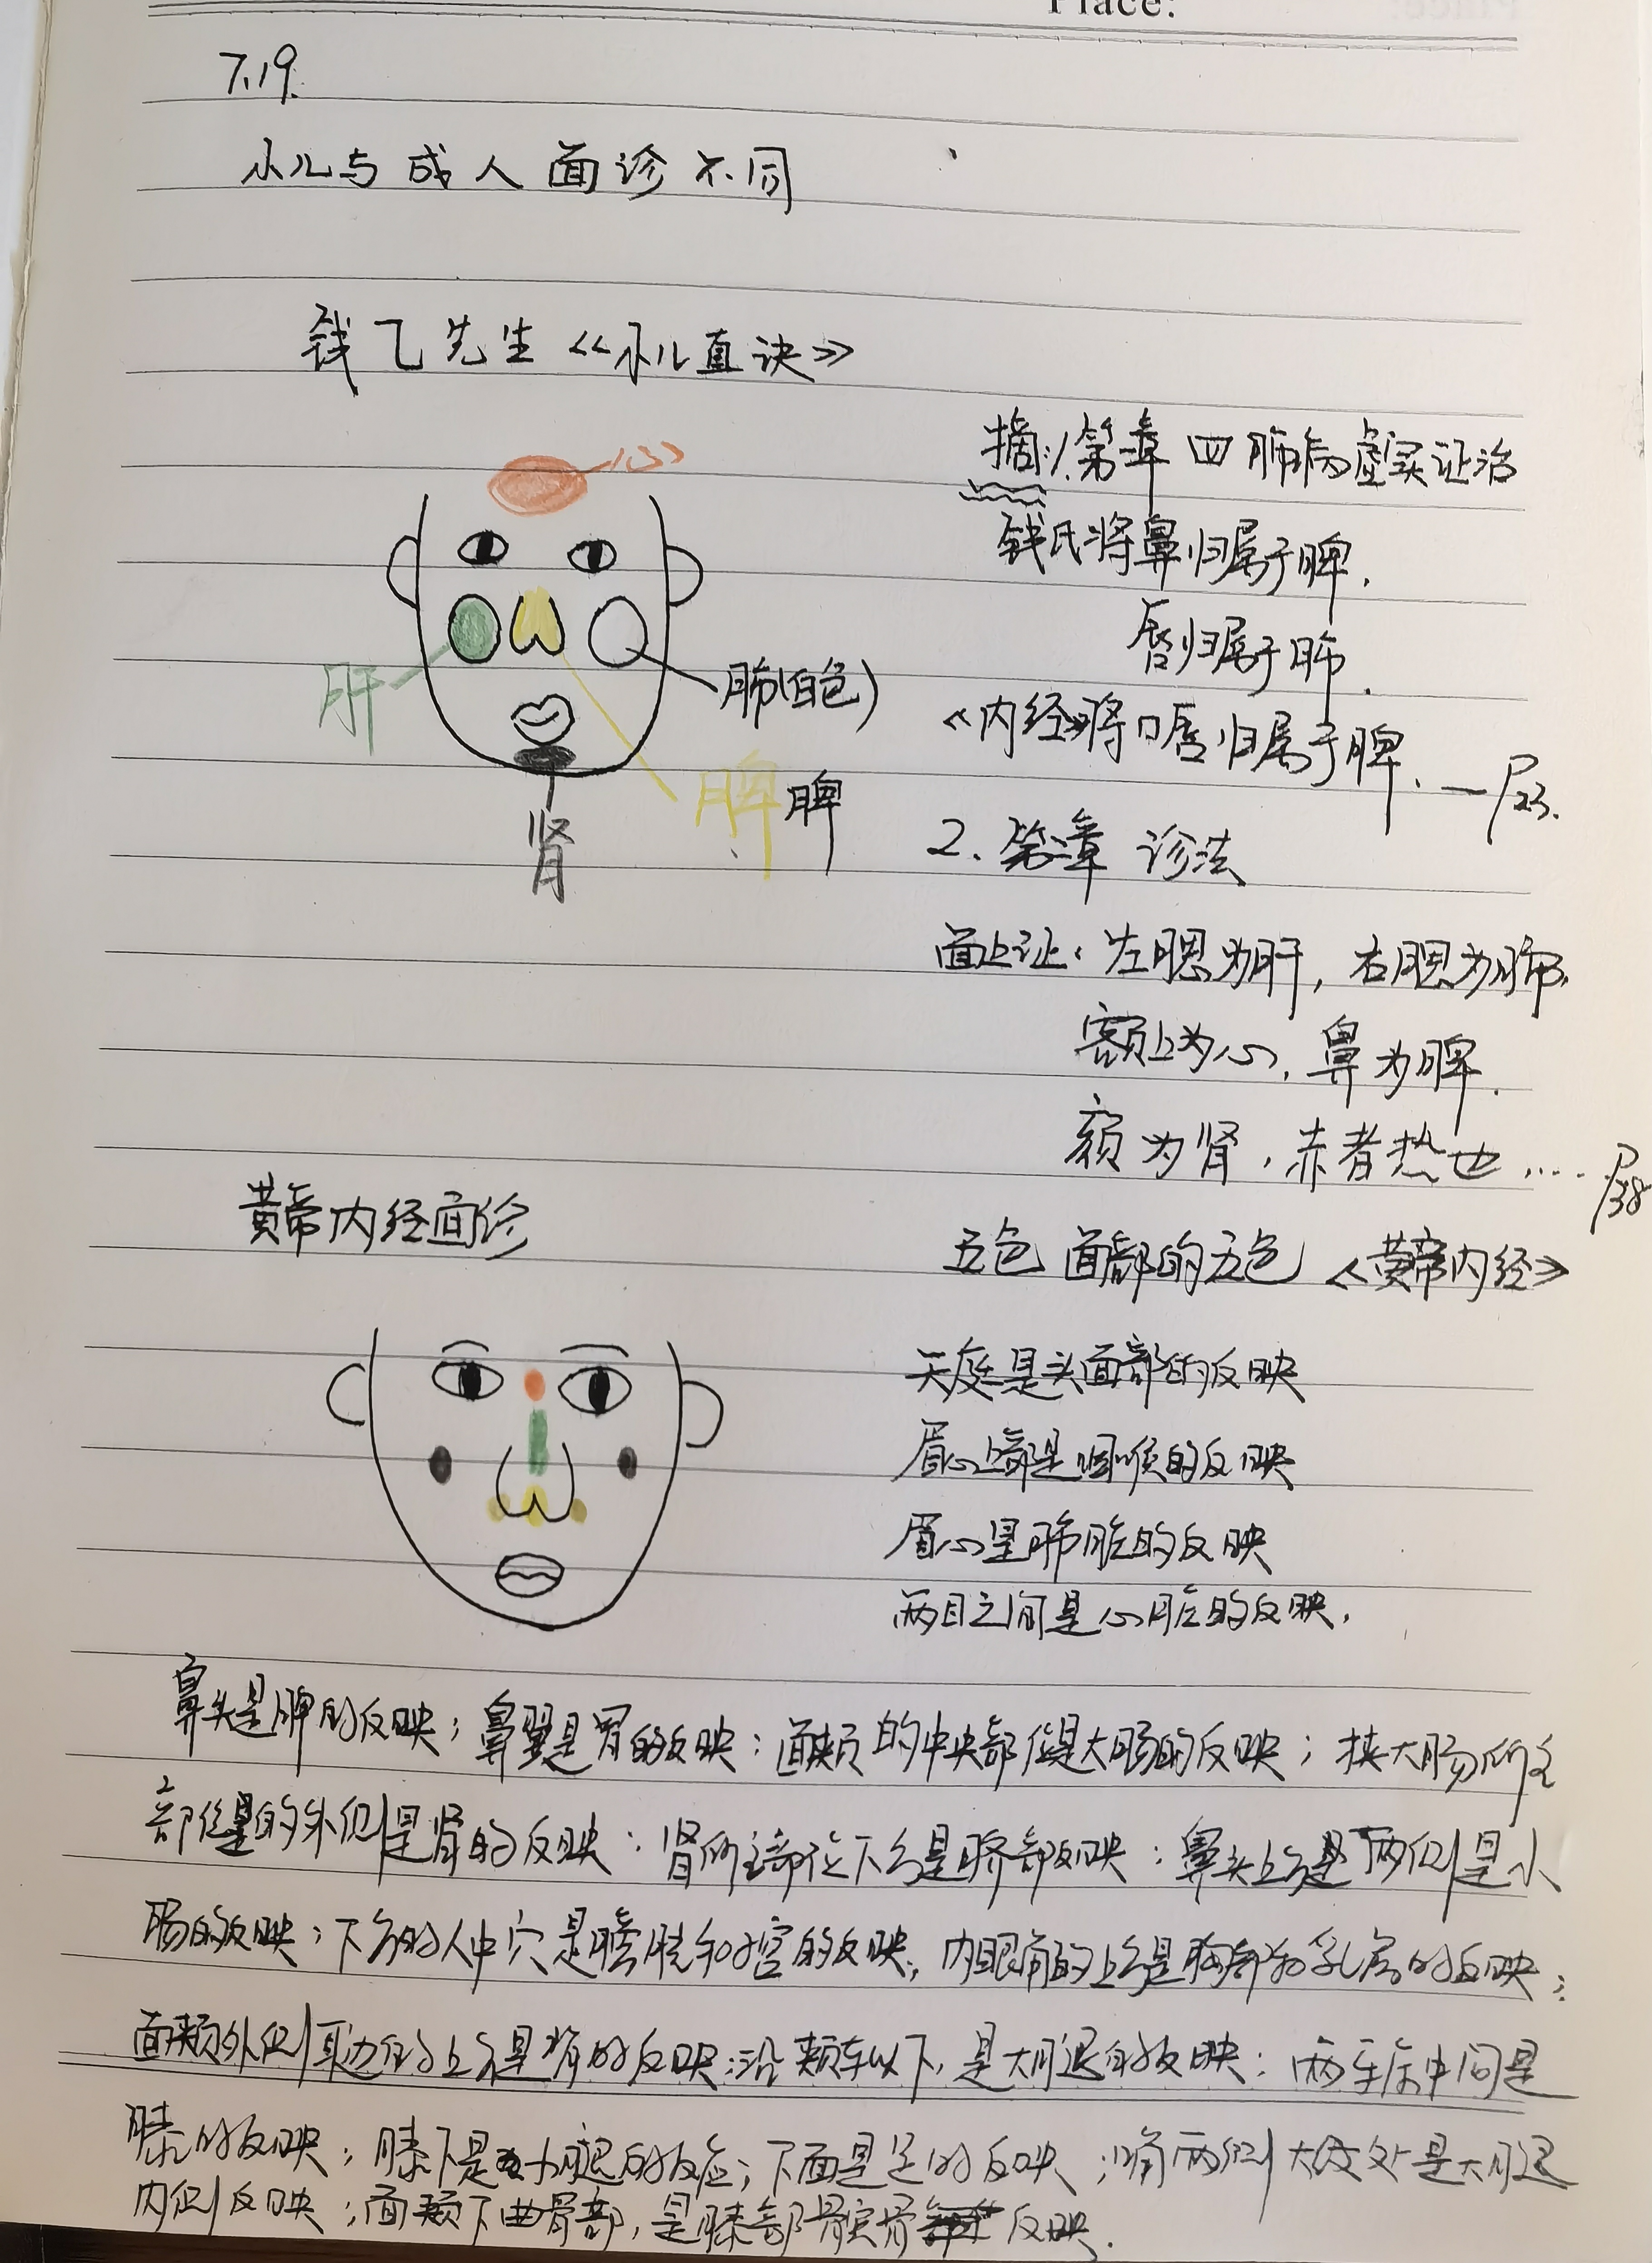 Place:
7.19.
小儿与成人面诊不同
钱乙先生《小儿直诀》
心
肝
肺(白色)
脾 脾
肾
摘:1.第章 四 肺病虚实证治
钱氏将鼻归属于脾.
唇归属于肺.
《内经》将口唇归属于脾. — P23.
2. 第章 诊法
面上证: 左腮为肝, 右腮为肺,
额上为心, 鼻为脾.
颏为肾, 赤者热也 .... P38
黄帝内经面诊
五色 面部的五色 《黄帝内经》
天庭是头面部的反映
眉心上部是咽喉的反映
眉心是肺脏的反映
两目之间是心脏的反映.
鼻头是脾的反映; 鼻翼是胃的反映; 面颊的中央部位是大肠的反映; 挟大肠所主
部位的外侧是肾的反映; 肾所主部位下方是脐部反映; 鼻头上方是两侧是小
肠的反映; 下方的人中穴是膀胱和子宫的反映, 内眼角的上方是胸部和乳房的反映;
面颊外侧耳边的上方是背的反映; 沿颊车以下, 是大腿的反映; 两牙床中间是
膝的反映; 膝下是小腿的反应; 下面是足的反映; 嘴两侧大纹处是大腿
内侧反映; 面颊下曲骨部, 是膝部髌骨反映.